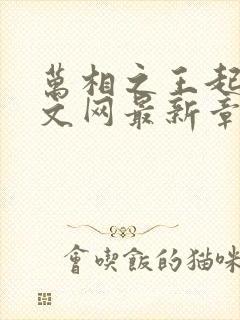 萬相之王起
文网最新章
會喫飯的猫咪